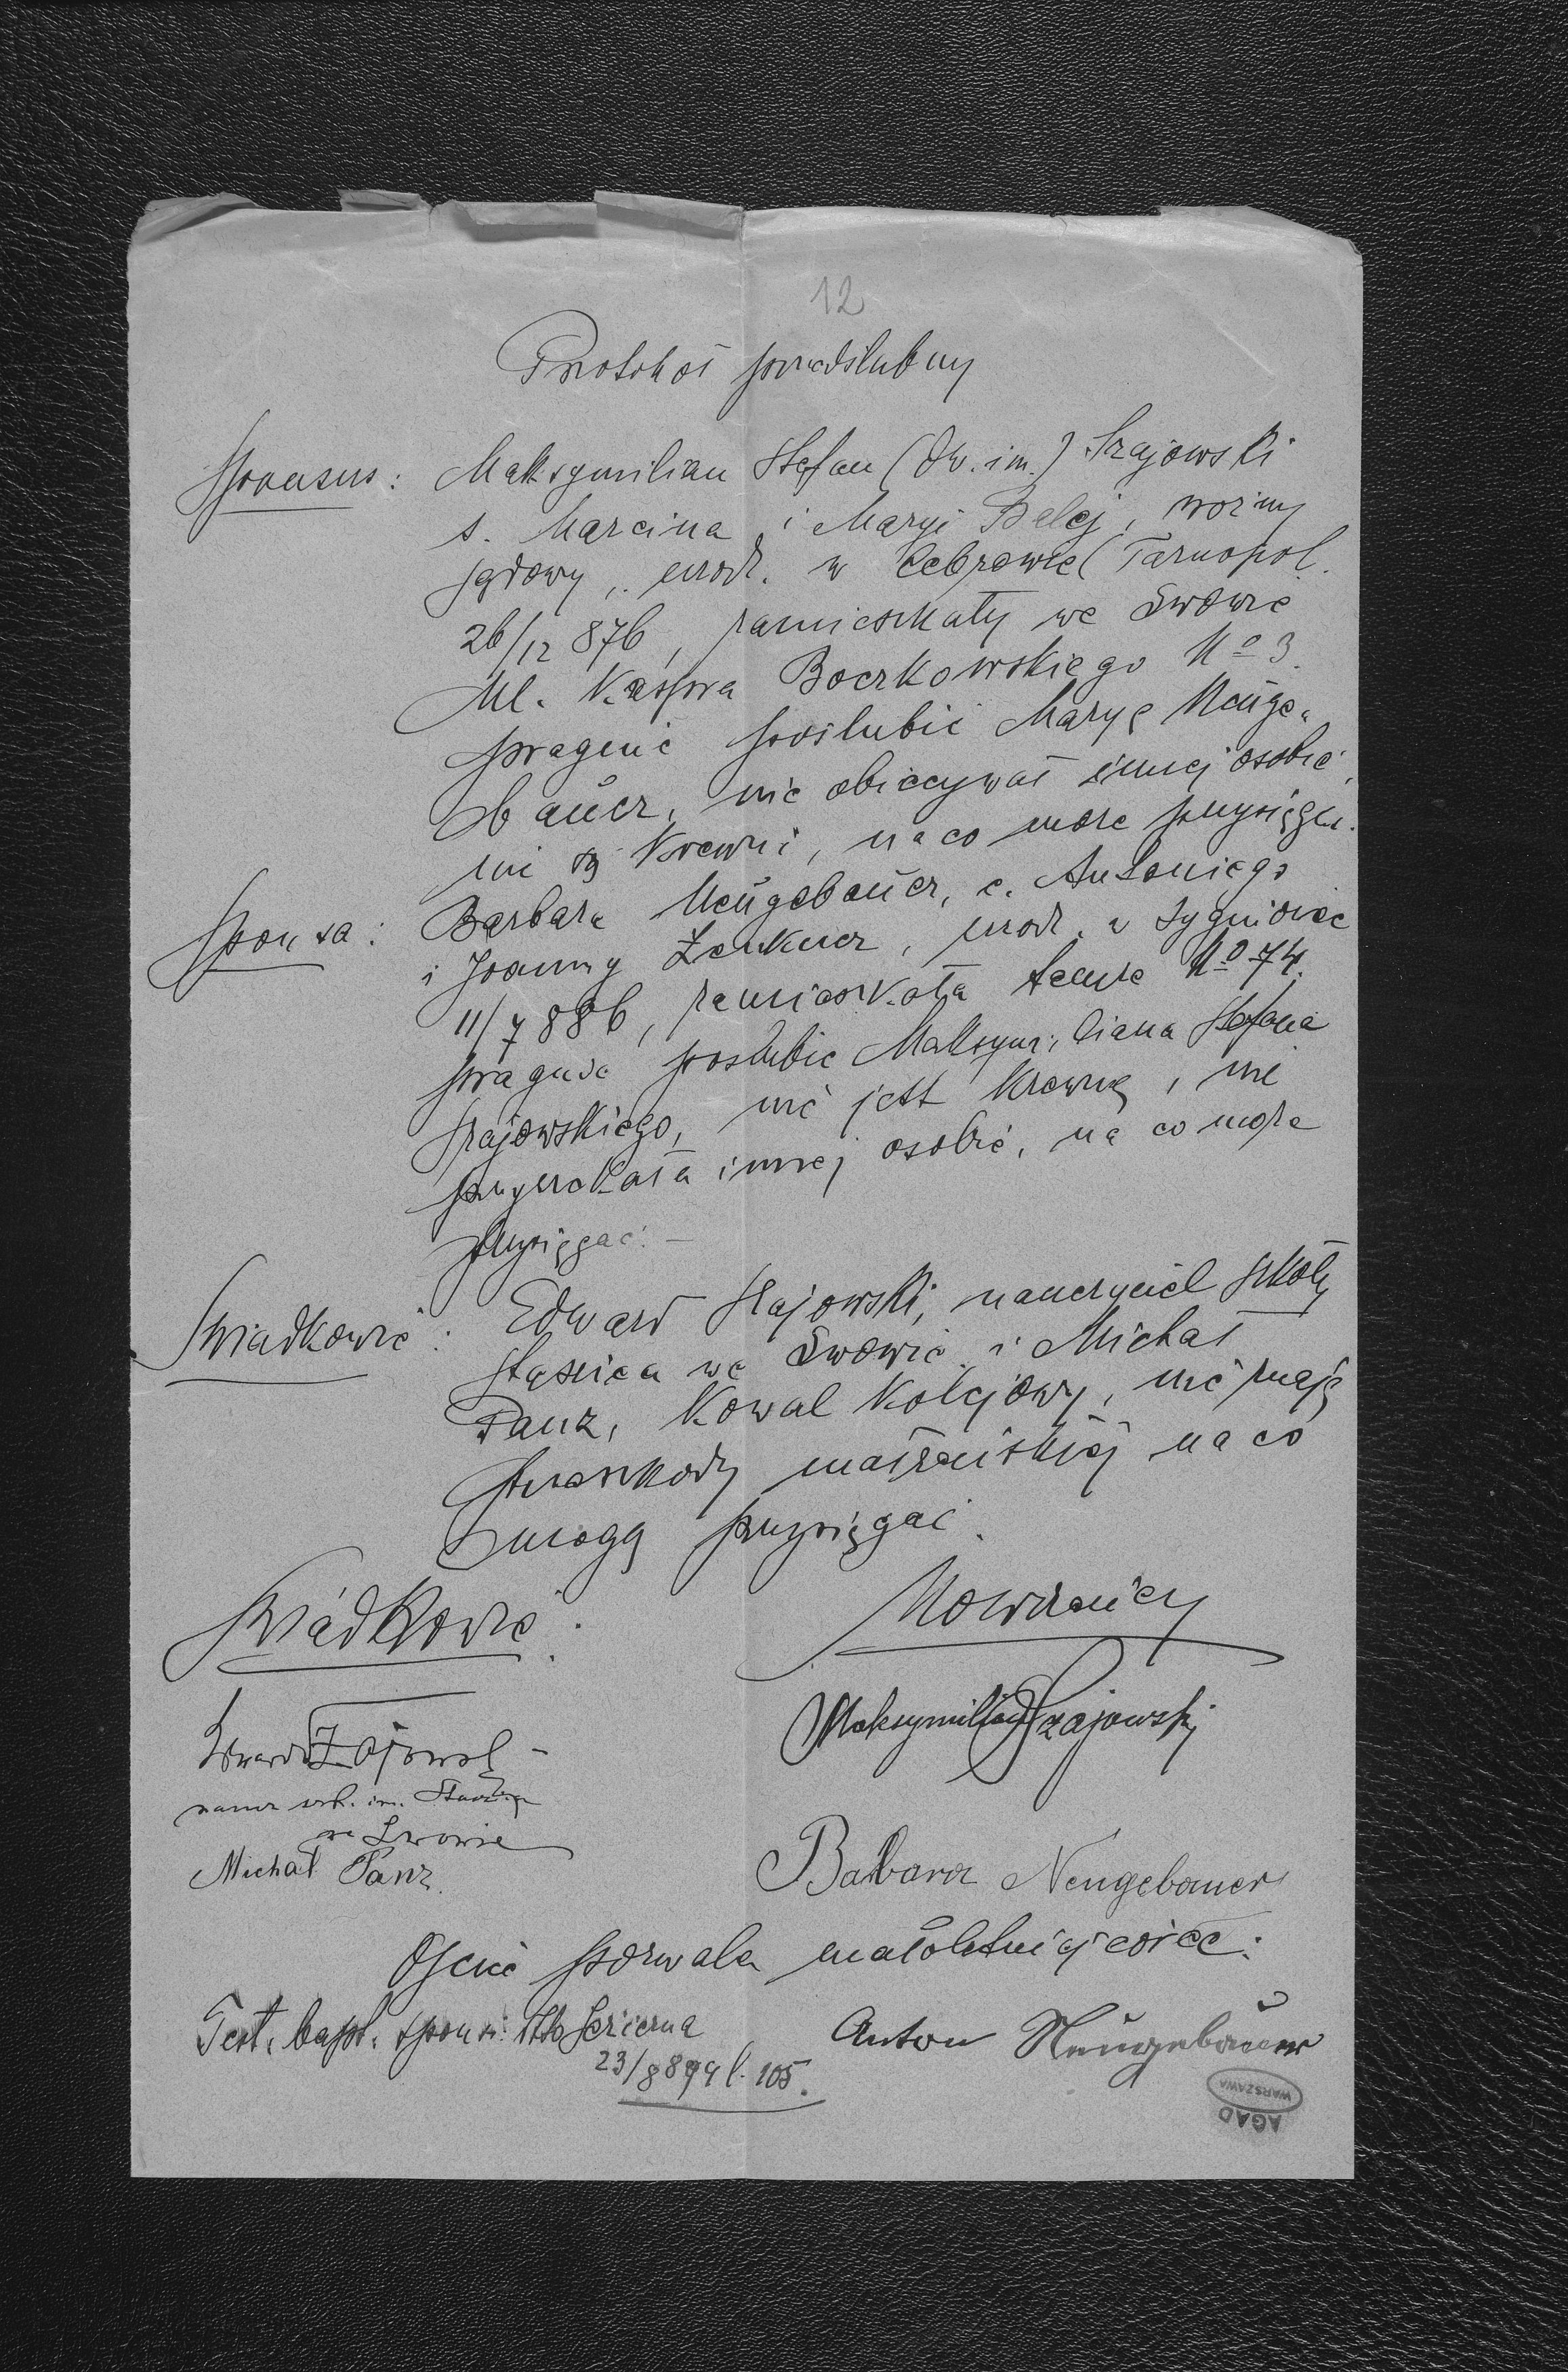 12
Protokół przedślubny
Sponsus: Maksymilian Stefan (dw. im.) Szajowski
s. Marcina i Maryi Belej, woźny
sądowy, urodz. w Cebrowie (Tarnopol.
26/12 876, zamieszkały we Lwowie
Ul. Kaspra Boczkowskiego No 3.
pragnie poślubić Maryę Neuge-
bauer, nie obiecywał innej osobie,
ni są krewni, na co może przysięgać.
Sponsa: Barbara Neugebauer, c. Antoniego
i Joanny Zenkner, urodz. w Sygniówce
11/7 886, zamieszkała tamże No 74.
pragnie poślubić Maksymiliana Stefana
Szajowskiego, nie jest krewną, nie
przyrzekała innej osobie, na co może
przysięgać. —
Świadkowie: Edward Szajowski, nauczyciel szkoły
Staszica we Lwowie i Michał
Panz, Kowal Kolejowy, nie znają
przeszkody małżeńskiej na co
mogą przysięgać.
Świadkowie: Nowożeńcy
Maksymilian Szajowski
Edward Szajowski
naucz. szk. im. Staszica
we Lwowie
Michał Panz.
Barbara Neugebauer
Ojciec pozwala małoletniej córce:
Test. bapt. sponsi: Jezierna
23/8 899 l. 105.
Anton Neugebauer
AGAD
WARSZAWA